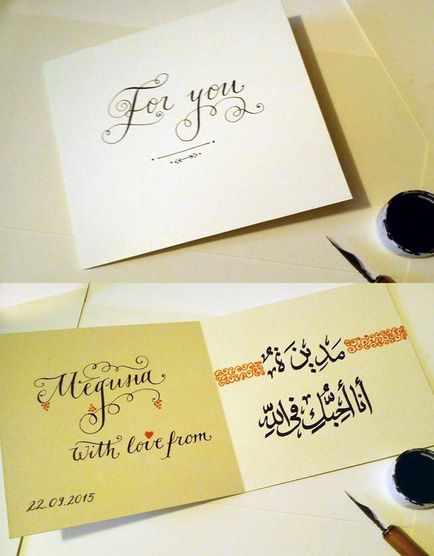 For you
Медина
With love from
22.09.2015
مَدِينَةُ
أنا أُحِبُّكِ في اللهِ